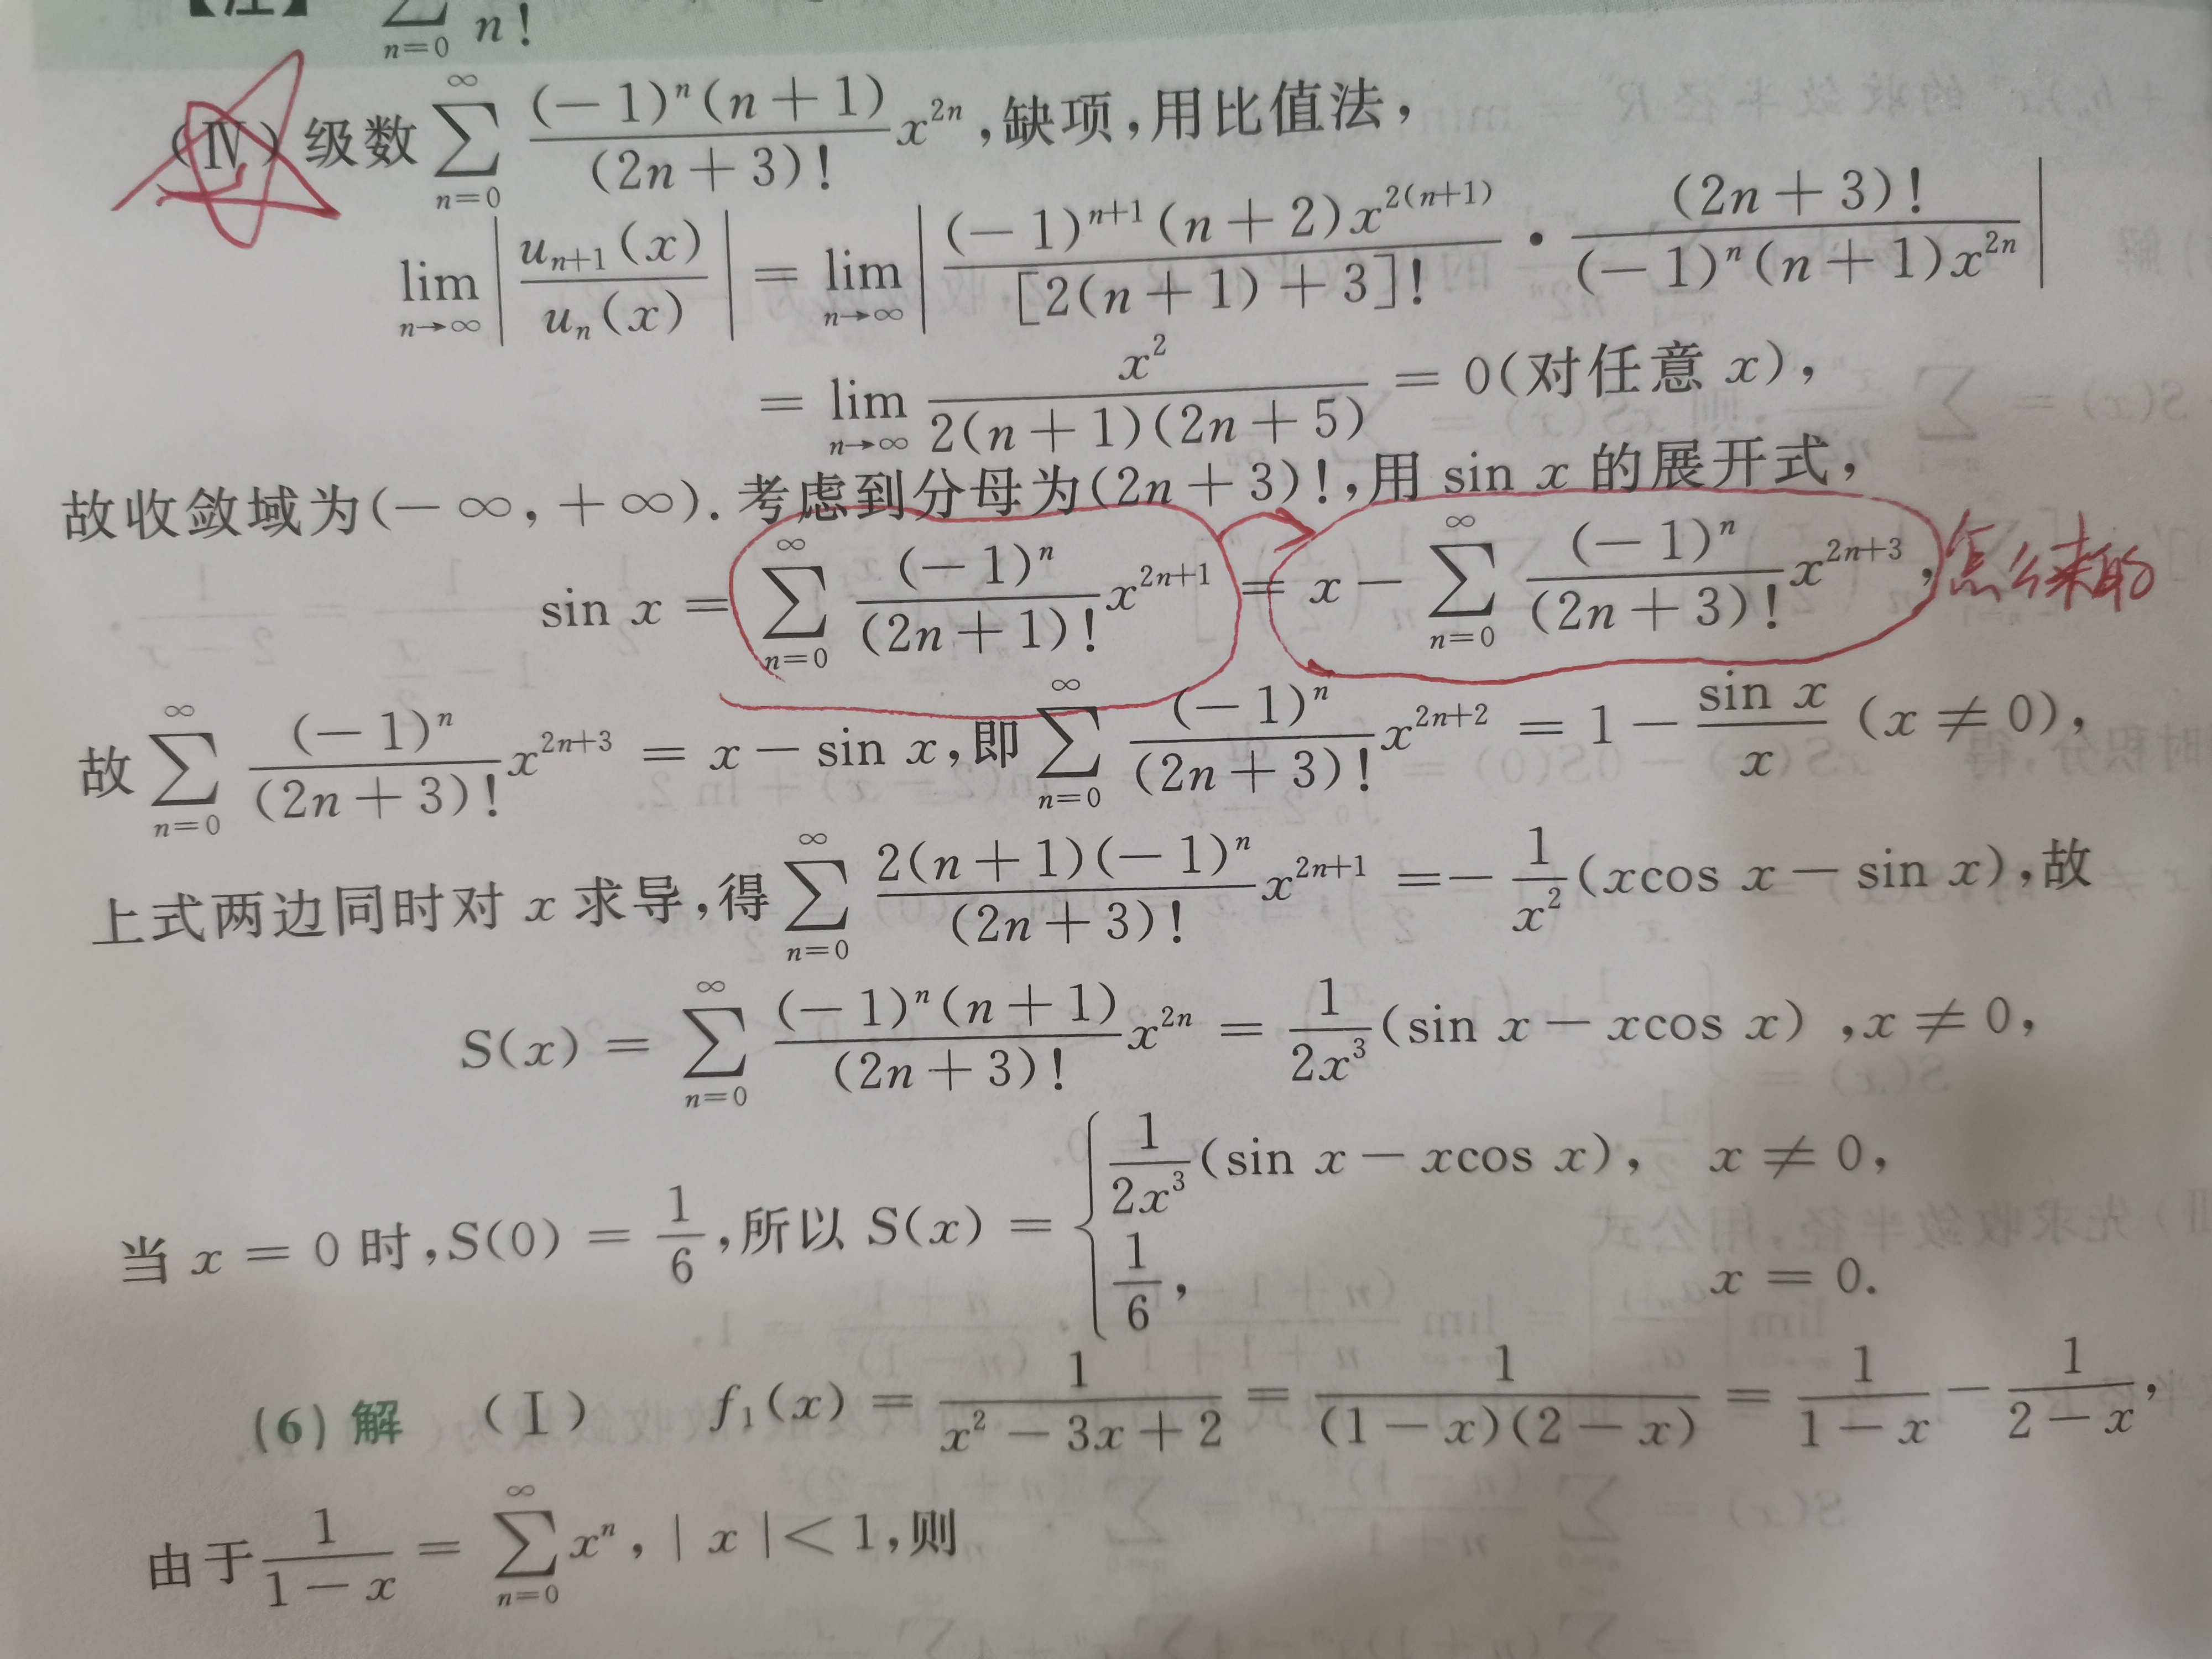 【注】 \sum_{n=0} n!
(Ⅳ) 级数 \sum_{n=0}^{\infty} \frac{(-1)^n(n+1)}{(2n+3)!} x^{2n},缺项,用比值法,
\lim_{n→∞} \left| \frac{u_{n+1}(x)}{u_n(x)} \right| = \lim_{n→∞} \left| \frac{(-1)^{n+1}(n+2)x^{2(n+1)}}{[2(n+1)+3]!} · \frac{(2n+3)!}{(-1)^n(n+1)x^{2n}} \right|
= \lim_{n→∞} \frac{x^2}{2(n+1)(2n+5)} = 0(对任意 x),
故收敛域为(-∞,+∞).考虑到分母为(2n+3)!,用 sin x 的展开式,
sin x = \sum_{n=0}^{\infty} \frac{(-1)^n}{(2n+1)!} x^{2n+1} = x - \sum_{n=0}^{\infty} \frac{(-1)^n}{(2n+3)!} x^{2n+3}, 怎么来的
故 \sum_{n=0}^{\infty} \frac{(-1)^n}{(2n+3)!} x^{2n+3} = x - sin x,即 \sum_{n=0}^{\infty} \frac{(-1)^n}{(2n+3)!} x^{2n+2} = 1 - \frac{sin x}{x} (x ≠ 0),
上式两边同时对 x 求导,得 \sum_{n=0}^{\infty} \frac{2(n+1)(-1)^n}{(2n+3)!} x^{2n+1} = -\frac{1}{x^2}(xcos x - sin x),故
S(x) = \sum_{n=0}^{\infty} \frac{(-1)^n(n+1)}{(2n+3)!} x^{2n} = \frac{1}{2x^3}(sin x - xcos x) ,x ≠ 0,
当 x = 0 时,S(0) = \frac{1}{6},所以 S(x) = \begin{cases} \frac{1}{2x^3}(sin x - xcos x), & x ≠ 0, \\ \frac{1}{6}, & x = 0. \end{cases}
(6) 解 (Ⅰ) f_1(x) = \frac{1}{x^2-3x+2} = \frac{1}{(1-x)(2-x)} = \frac{1}{1-x} - \frac{1}{2-x},
由于 \frac{1}{1-x} = \sum_{n=0}^{\infty} x^n, | x |< 1,则